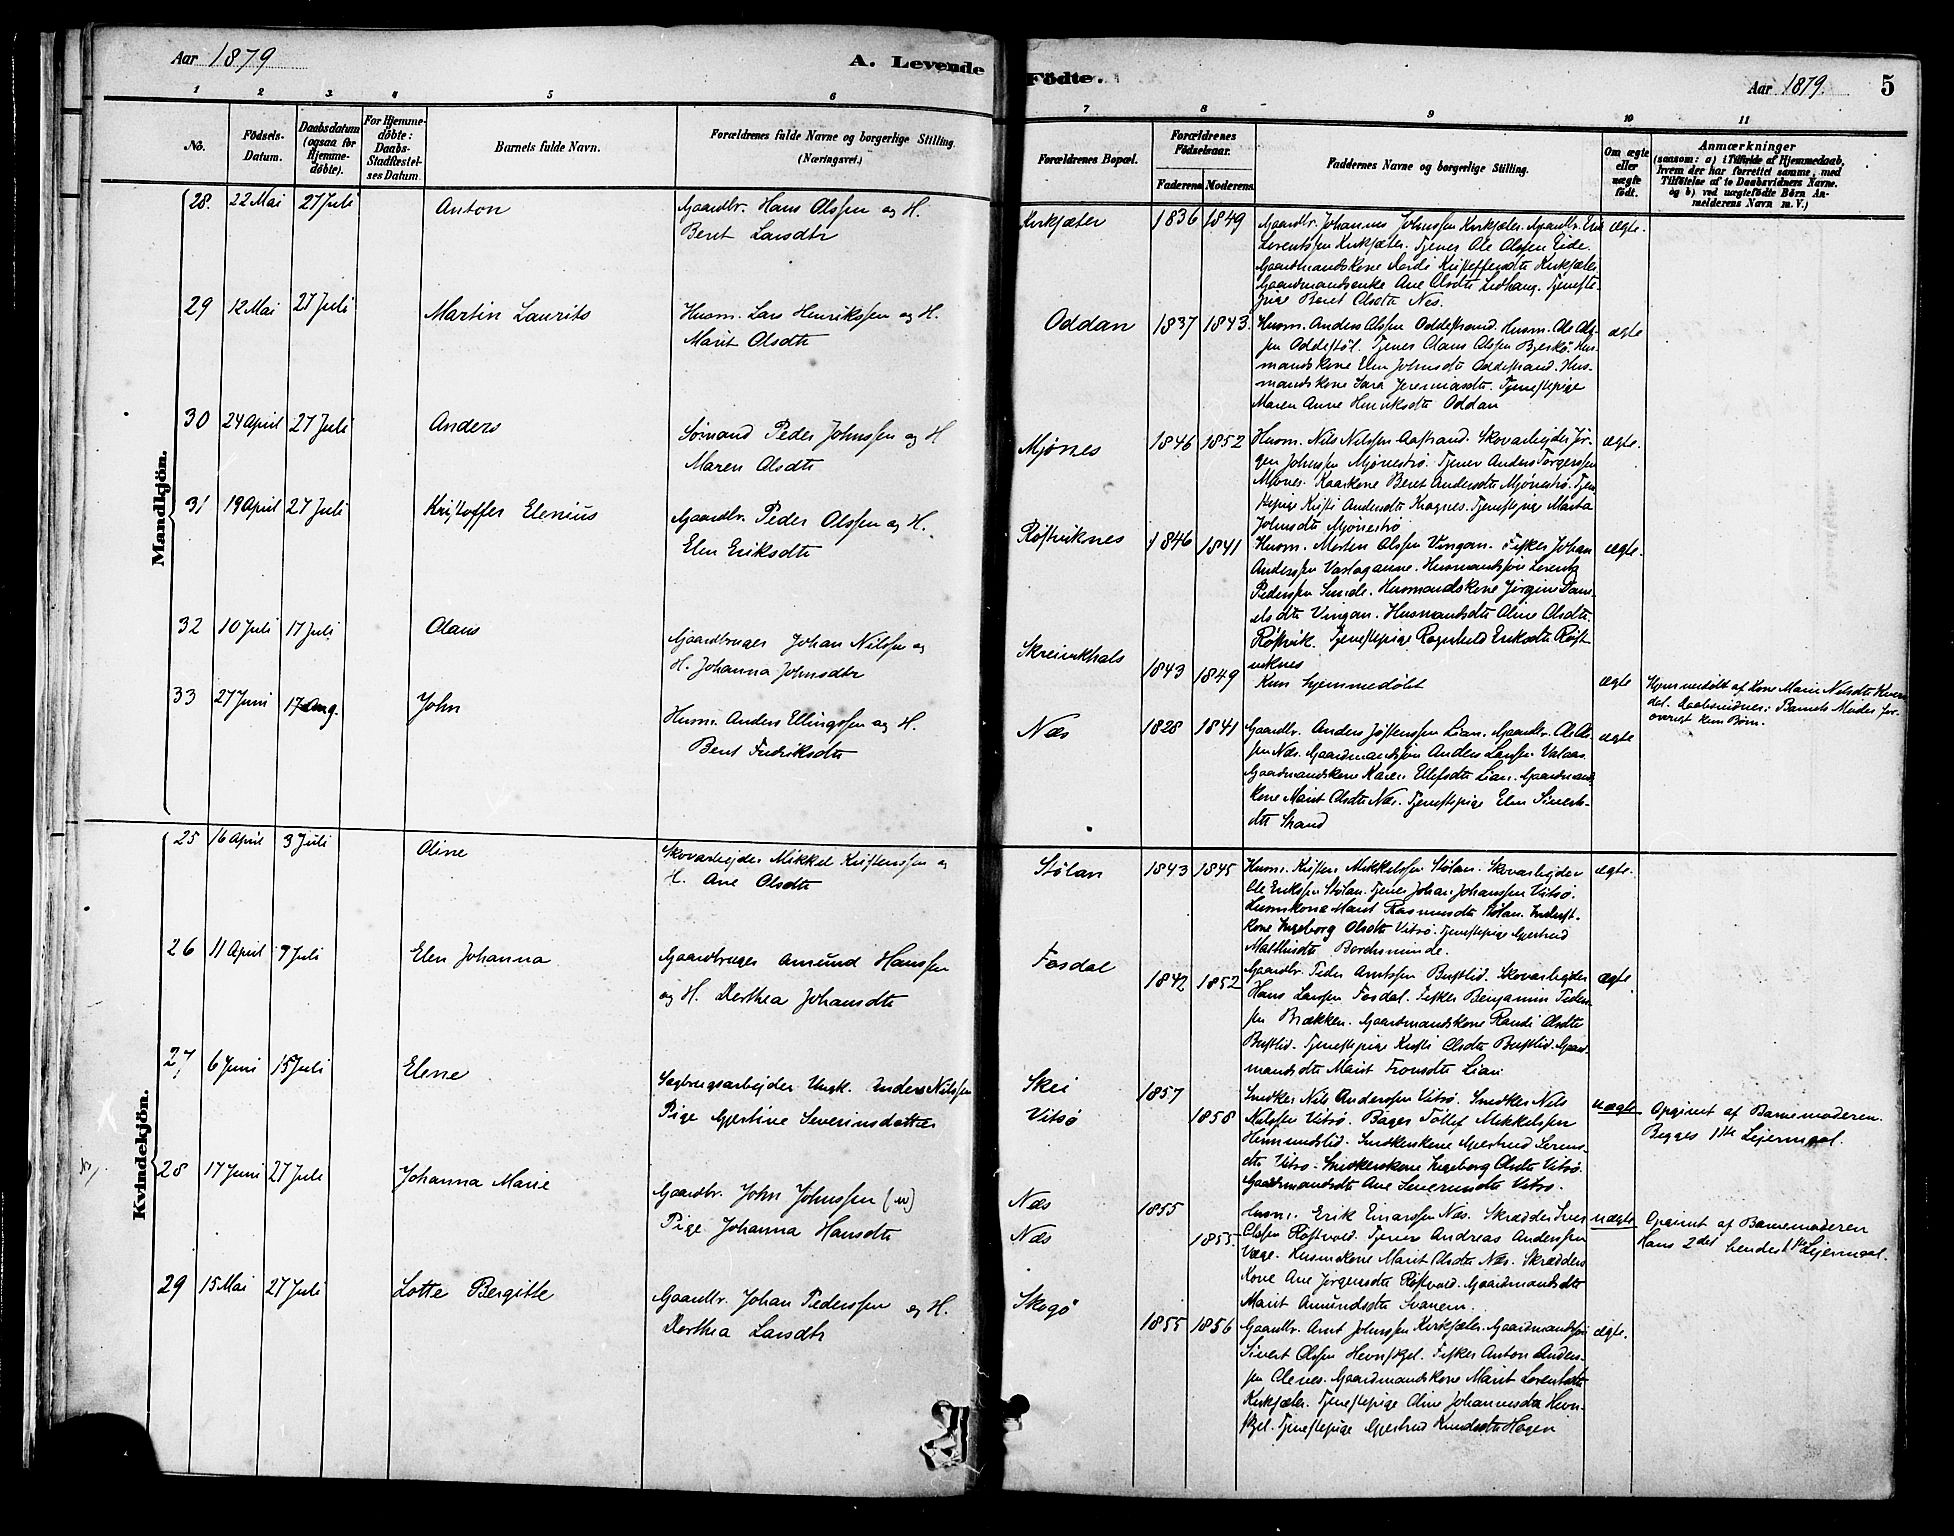 Aar 1879
A. Levende
Fødte.
Aar 1879.
5
1 2 3 4 5 6 7 8 9 10 11
No.
Fødsels-
Datum.
Daabsdatum
(ogsaa for
Hjemme-
døbte).
For Hjemme-
døbte:
Daabs-
Stadfæstel-
ses Datum.
Barnets fulde Navn.
Forældrenes fulde Navne og borgerlige Stilling.
(Næringsvei.)
Forældrenes Bopæl.
Forældrenes
Fødselsaar.
Faderens. Moderens.
Faddernes Navne og borgerlige Stilling.
Om ægte
eller
uægte
født.
Anmærkninger
(saasom: a) i Tilfælde af Hjemmedaab,
hvem der har forrettet samme, med
Tilføielse af to Daabsvidners Navne,
og b) ved uægtefødte Børn An-
melderens Navn m. V.)
Mandkjön.
28. 22 Mai 27 Juli Anton Gaardbr. Hans Olssen og H.
Beret Larsdtr
Kirksæter 1836 1849 Gaardbr. Johannes Johnssen Kirksæter. Gaardbr. Erik
Lorentssen Kirksæter. Tjener Ole Olssen Eide.
Gaardmandskone Kristoffersdtr Kirksæter
Gaardmandsenke Ane Olsdtr Ledhaug. Tjeneste-
pige Beret Olsdtr Næs.
ægte.
29 12 Mai 27 Juli Martin Laurits Husm. Lars Henrikssen og H.
Marit Olsdtr
Oddan 1837 1843. Husm. Anders Olssen Oddestrand. Husm. Ole Ols-
sen Oddestöl. Tjener Claus Olssen Bjerkö. Hus-
mandskone Elen Johnsdtr Oddestrand. Hus-
mandskone Sara Jeremiasdtr. Tjenestepige
Maren Anne Henriksdtr Oddan
ægte
30 24 April 27 Juli Anders Sømand Peder Johnssen og H
Maren Olsdtr
Mjønes 1846 1852 Husm. Nils Nilssen Aastrand. Skovarbejder Jør-
gen Johnssen Mjønestrø. Tjener Anders Torgerssen
Mjønes. Kaarkone Beret Andersdtr Mjønestrø. Tjene-
stepige Kristi Andersdtr Krognes. Tjenestepige Marta
Johnsdtr Mjønestrø
ægte.
31 19 April 27 Juli Kristoffer Elenius Gaardbr. Peder Olssen og H.
Elen Eriksdtr
Røstviknes 1846 1841 Husm. Morten Olssen Vingan. Fisker Johan
Anderssen Vaslaganne. Husmandssøn Lorentz
Pederssen Sunde. Husmandskone Jørgine Dani-
elsdtr Vingan. Husmandsdtr Oline Olsdtr.
Røstvik. Tjenestepige Ragnhild Eriksdtr Røst-
viknes
ægte.
32 10 Juli 17 Juli Olaus Gaardbruger Johan Nilssen og
H. Johanna Johnsdtr
1843 1849 Kun hjemmedøbt ægte
Hjemmedøbt af Kone Marie Nilsdtr
Daabsvidner: Barnets Moder for-
øvrigt kun Børn.
33 27 Juni 17 Aug. John Husm. Anders Ellingssen og H.
Beret Fredriksdtr
Næs 1828 1841 Gaardbr. Anders Lian. Gaardbr. Ole Ol-
sen Næs. Gaardmandssøn Anders Larssen Valaas
Gaardmandskone Karen Ellefsdtr Lian. Gaardmands-
kone Marit Olsdtr Næs. Tjenestepige Elen Siverts-
dtr Strand
ægte
Kvindekjön.
25 16 April 3 Juli Oline Skovarbejder Mikkel Kristenssen og
H. Ane Olsdtr
Stølan 1843 1845 Husm. Kristen Mikkelssen Stølan. Skovarbejder
Ole Erikssen Stølan. Tjener Johan Johanssen Vitsø.
Husmkone Marit Rasmusdtr Stølan.
Kone Ingeborg Olsdtr Vitsø. Tjenestepige Gjertrud
Matthisdtr
ægte.
26 11 April 9 Juli Elen Johanna Gaardbruger Amund Hanssen
og H. Dorthea Johansdtr
Fosdal 1842 1852 Gaardbr. Peder Arntssen Bustlid. Skovarbejder
Hans Larssen Fosdal. Fisker Benjamin Peders-
sen Brækken. Gaardmandskone Randi Olsdtr
Bustlid. Tjenestepige Kristi Olsdtr Bustlid. Gaard-
mandsdtr Marit Tronsdtr Lian
ægte
27 6 Juni 15 Juli Elene Sagbrugsarbejder Ungk. Anders Nilssen
Pige Gjertine Severinsdatter
Skei 1857
Vitsø 1858
Snedker Nils Anderssen Vitsø. Snedker Nils
Nilssen Vitsø. Bager Tollef Mikkelssen
Hemmundslid. Snedkerkone Gjertrud Lorents-
dtr Vitsø. Snedkerskone Ingeborg Olsdtr Vitsø.
Gaardmandsdtr Ane Severinsdtr Vitsø.
uægte
Opgivet af Barnemoderen.
Begges 1ste Lejermaal.
28 17 Juni 27 Juli Johanna Marie Gaardbr. John Johnssen (u)
Pige Johanna Hansdtr
Næs 1855
Næs 1855.
Husm. Erik Einarssen Næs. Skrædder Iver
Olssen Røstvold. Tjener Andreas Anderssen
Vaage. Husmskone Marit Olsdtr Næs. Skrædder-
kone Ane Jørgensdtr Røstvold. Gaardmandsdtr
Marit Amundsdtr Svanem.
uægte
Opgivet af Barnemoderen
Hans 2det hendes 1ste Lejermaal.
29 15 Mai 27 Juli Lotte Bergitte Gaardbr. Johan Pederssen og H.
Dorthea Larsdtr
Skogø 1855 1856 Gaardbr. Arnt Johnssen Kirksæter. Gaardmandssøn
Sivert Olssen Hevnskjel. Fisker Anton Anders-
sen Clenes. Gaardmandskone Marit Lorentsdtr
Kirksæter. Tjenestepige Oline Johannesdtr Hevn-
skjel. Tjenestepige Gjertrud Knudsdtr Hagen
ægte.